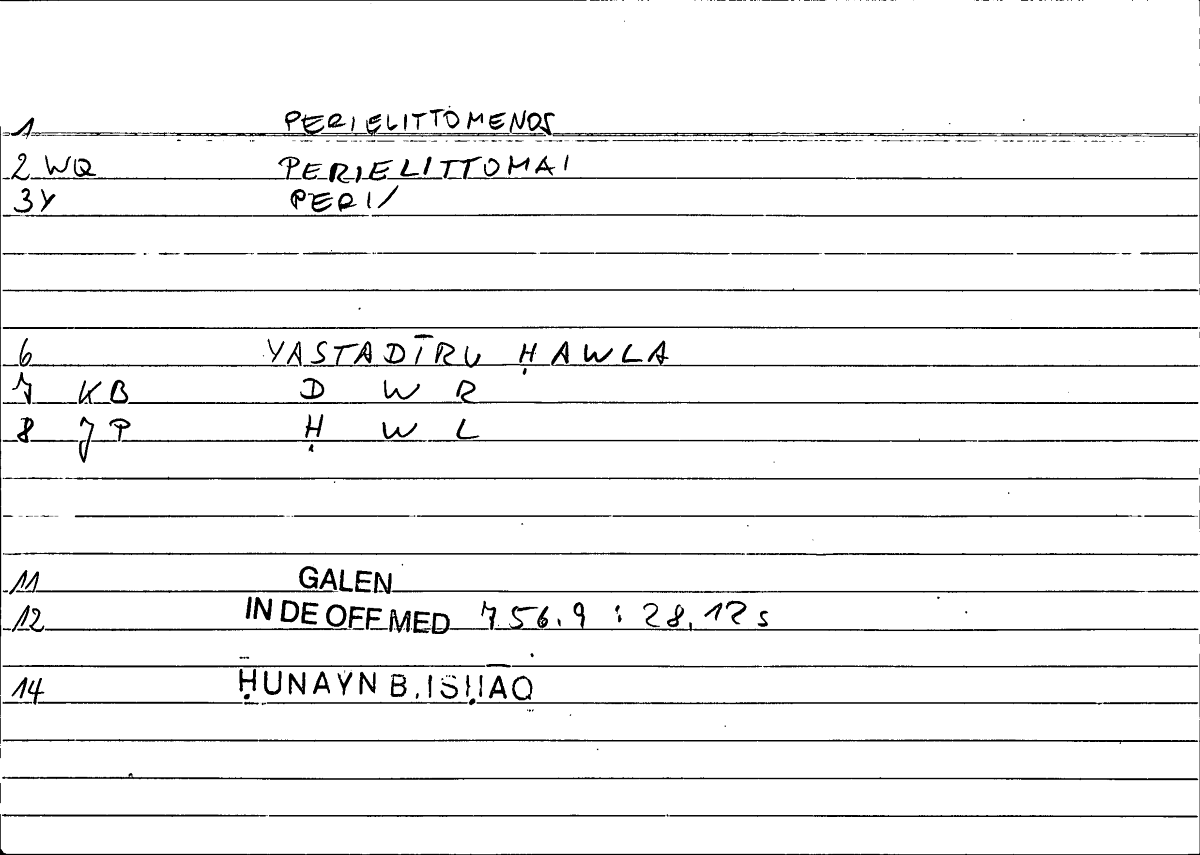 1 PERIELITTOMENOS
2 WQ PERIELITTOMAI
3Y PERI/
6 YASTADĪRU ḤAWLA
7 KB D W R
8 JP Ḥ W L
11 GALEN
12 IN DE OFF MED 756.9 : 28.12s
14 ḤUNAYN B. ISḤĀQ